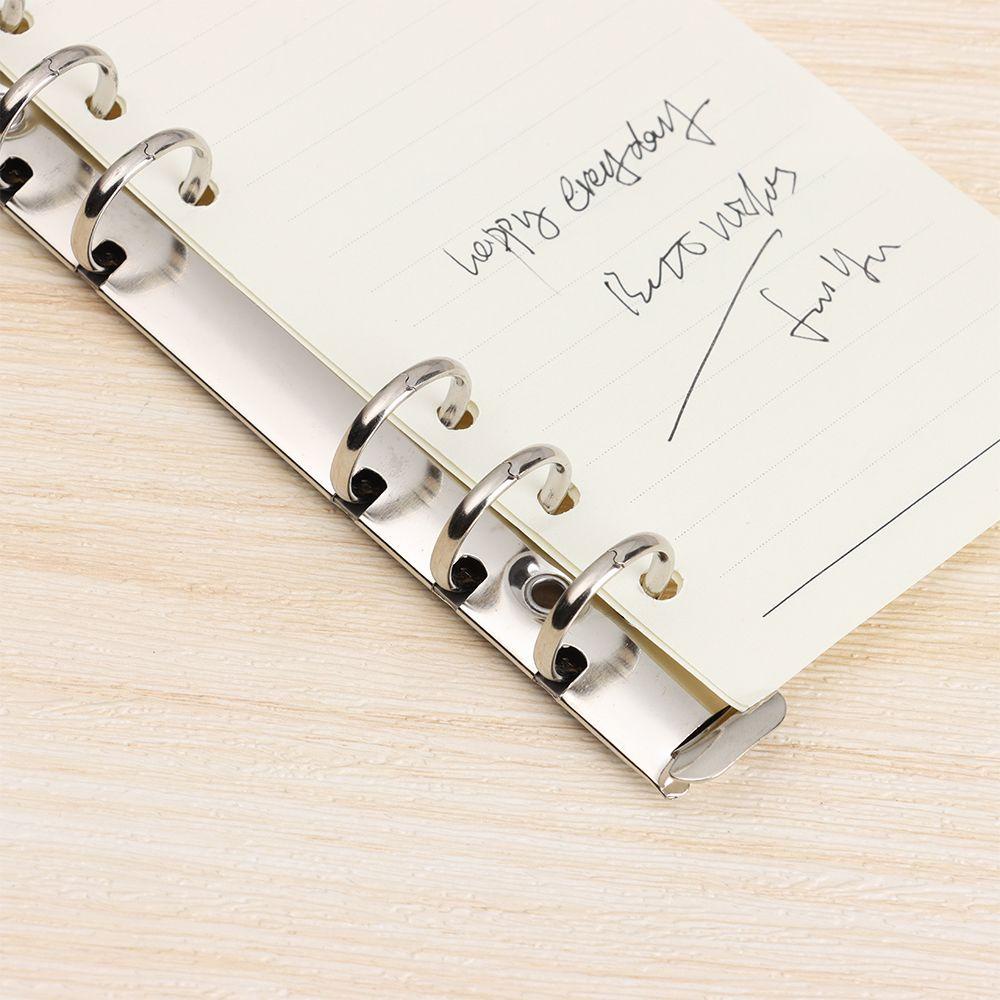 happy everyday
Best wishes
for you